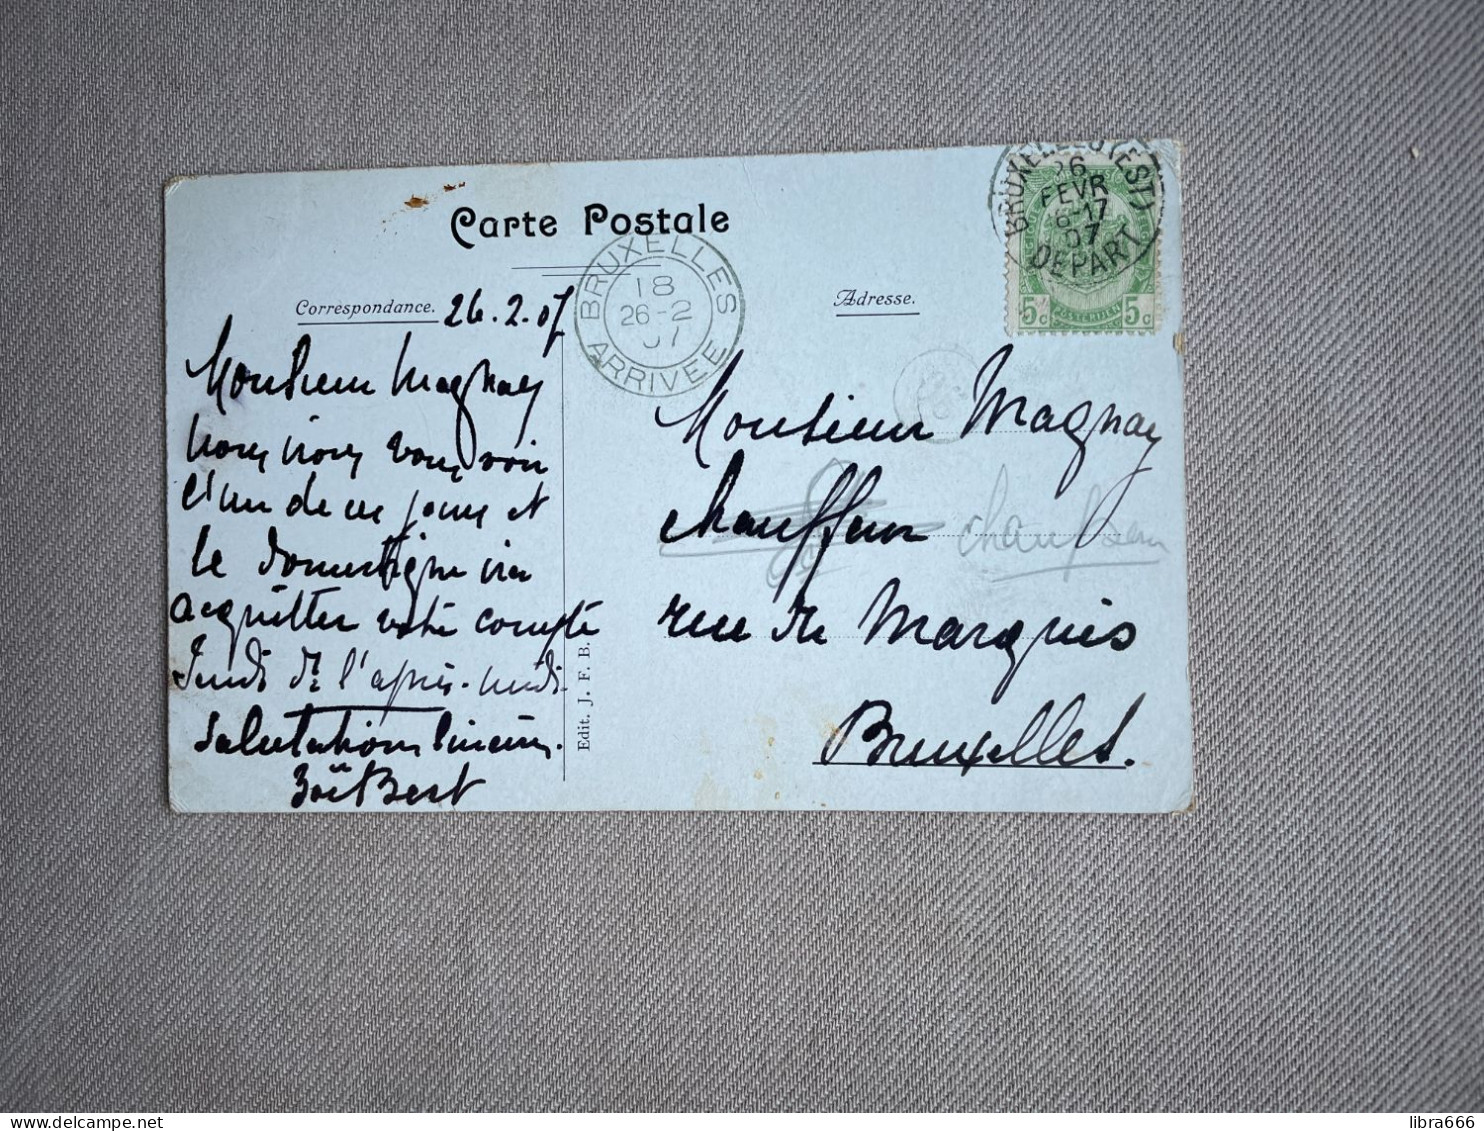 Carte Postale
Correspondance.
Adresse.
26.2.07
Monsieur Magnay
nous irons vous voir
l'un de ces jours et
le domestique ira
acquitter votre compte
Jeudi de l'après-midi
Salutations sincères.
Bert
Edit. J. F. B.
Monsieur Magnay
chauffeur
chauffeur
rue du Marquis
Bruxelles.
BRUXELLES
18
26-2
07
ARRIVEE
BRUXELLES (EST)
26
FEVR
16-17
07
DEPART
5c
POSTERIJEN
5c
libra666